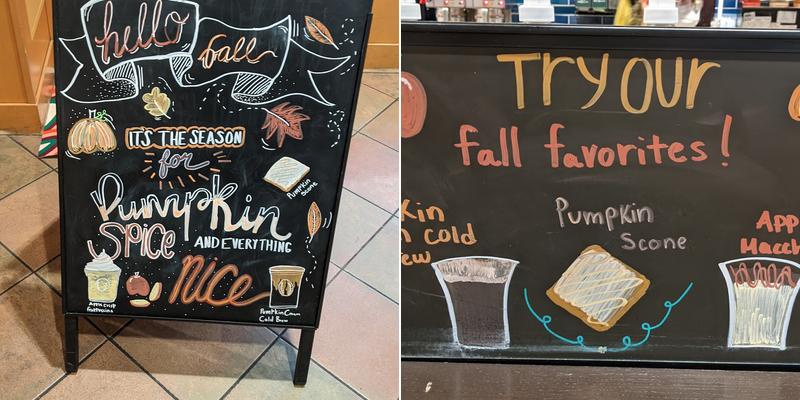 hello
fall
IT'S THE SEASON
for
Pumpkin
SPICE
AND EVERYTHING
NICE
Pumpkin
Scone
Apple crisp
Pumpkin Cream
Cold Brew
TRY OUR
fall favorites!
Pumpkin
Scone
kin
Cold
ew
App
Macch